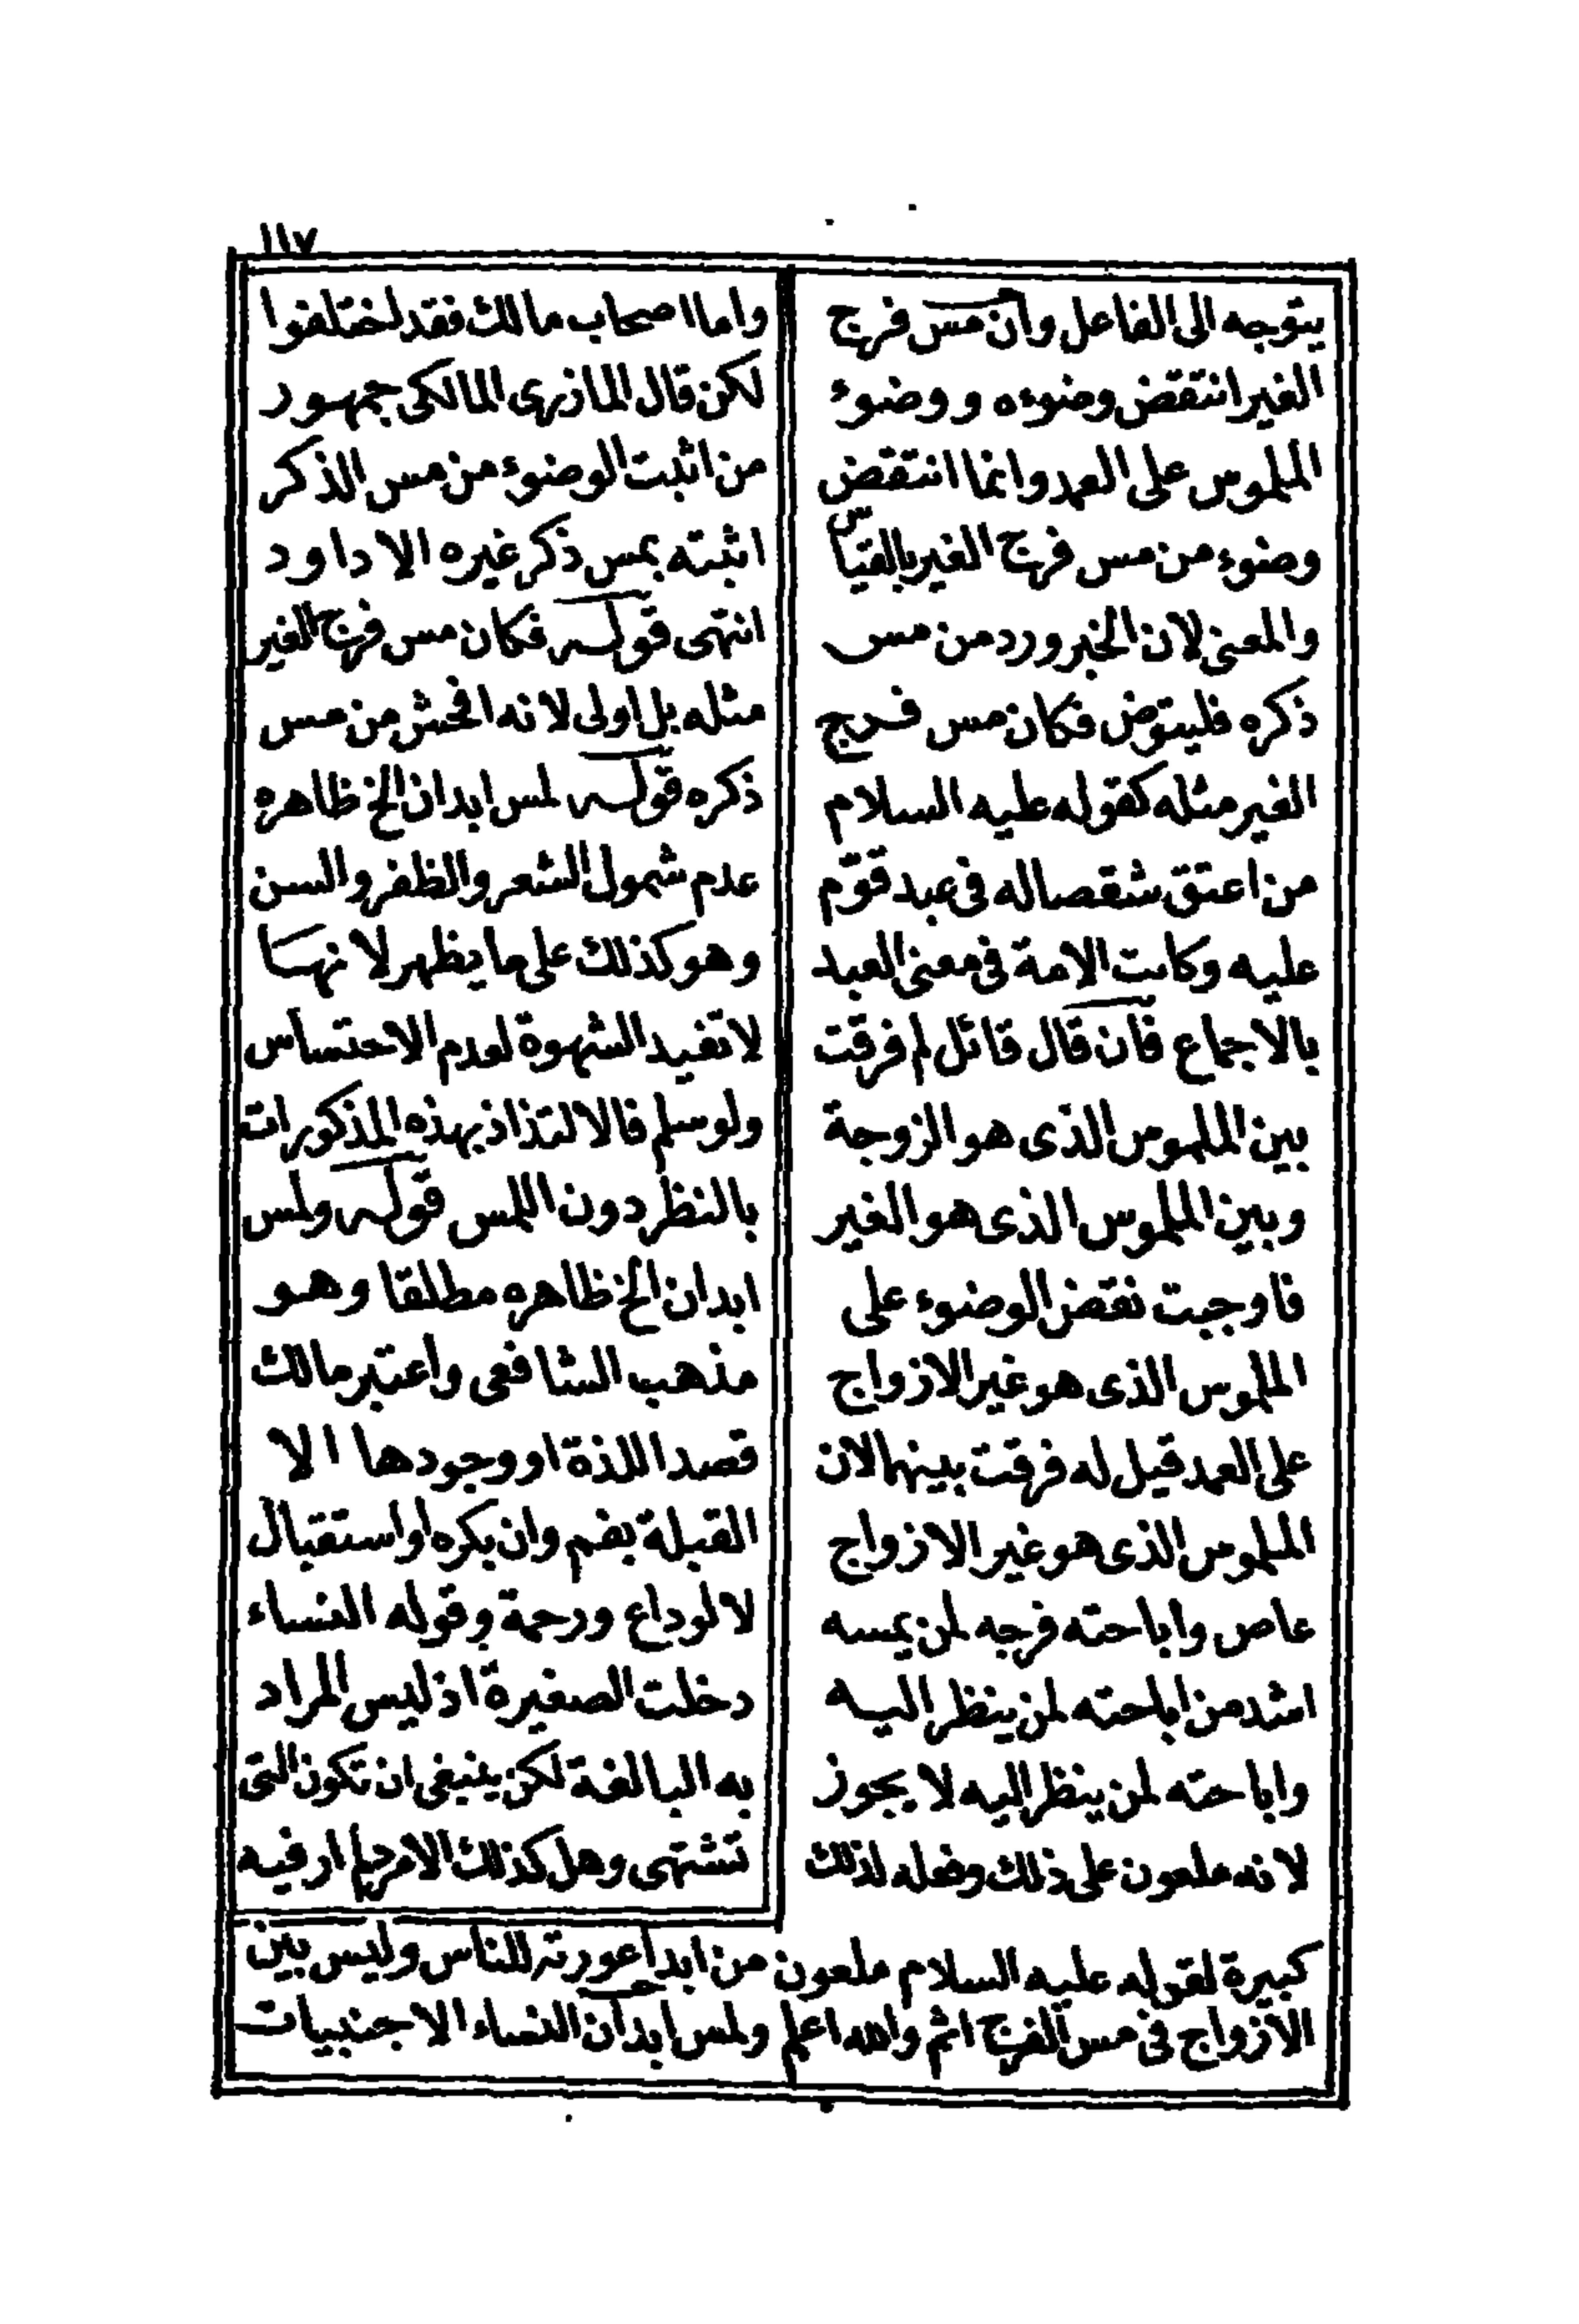 ١١٧
يتوجه الى الفاعل وان مس فرج
الغير انتقض وضوءه ووضوء
الملموس على العمد وانما انتقض
وضوء من مس فرج الغير بالقياس
والمعنى لان الخبر ورد من مس
ذكره فليتوض فكان مس فرج
الغير مثله كقوله عليه السلام
من اعتق شقصا له فى عبد قوّم
عليه وكانت الامة فى معنى العبد
بالاجماع فان قال قائل لم فرقت
بين الملموس الذى هو الزوجة
وبين الملموس الذى هو الغير
فاوجبت نقض الوضوء على
الملموس الذى هو غير الازواج
على العمد قيل له فرقت بينهما لان
الملموس الذى هو غير الازواج
عاص واباحته فرجه لمن يمسه
اشد من اباحته لمن ينظر اليه
واباحته لمن ينظر اليه لا يجوز
لانه ملعون على ذلك وفعله لذلك
كبيرة لقوله عليه السلام ملعون من ابدا عورته للناس وليس بين
الازواج فى مس الفرج اثم والله اعلم ولمس ابدان النساء الاجنبيات
واما اصحاب مالك فقد اختلفوا
لكن قال المازرى المالكى جمهور
من اثبت الوضوء من مس الذكر
اثبته بمس ذكر غيره الا داود
انتهى قوله فكان مس فرج الغير
مثله بل اولى لانه افحش من مس
ذكره قوله لمس ابدان الخ ظاهره
عدم شمول الشعر والظفر والسن
وهو كذلك على ما يظهر لانها
لا تفيد الشهوة لعدم الاحتساس
ولو سلم فالالتذاذ بهذه المذكورات
بالنظر دون اللمس قوله ولمس
ابدان الخ ظاهره مطلقا وهو
مذهب الشافعى واعتبر مالك
قصد اللذة او وجودها الا
القبلة بفم وان بكره او استقبال
لا لوداع ورحمة وقوله النساء
دخلت الصغيرة اذ ليس المراد
به البالغة لكن ينبغى ان تكون التى
تشتهى وهل كذلك الامرد لم ار فيه